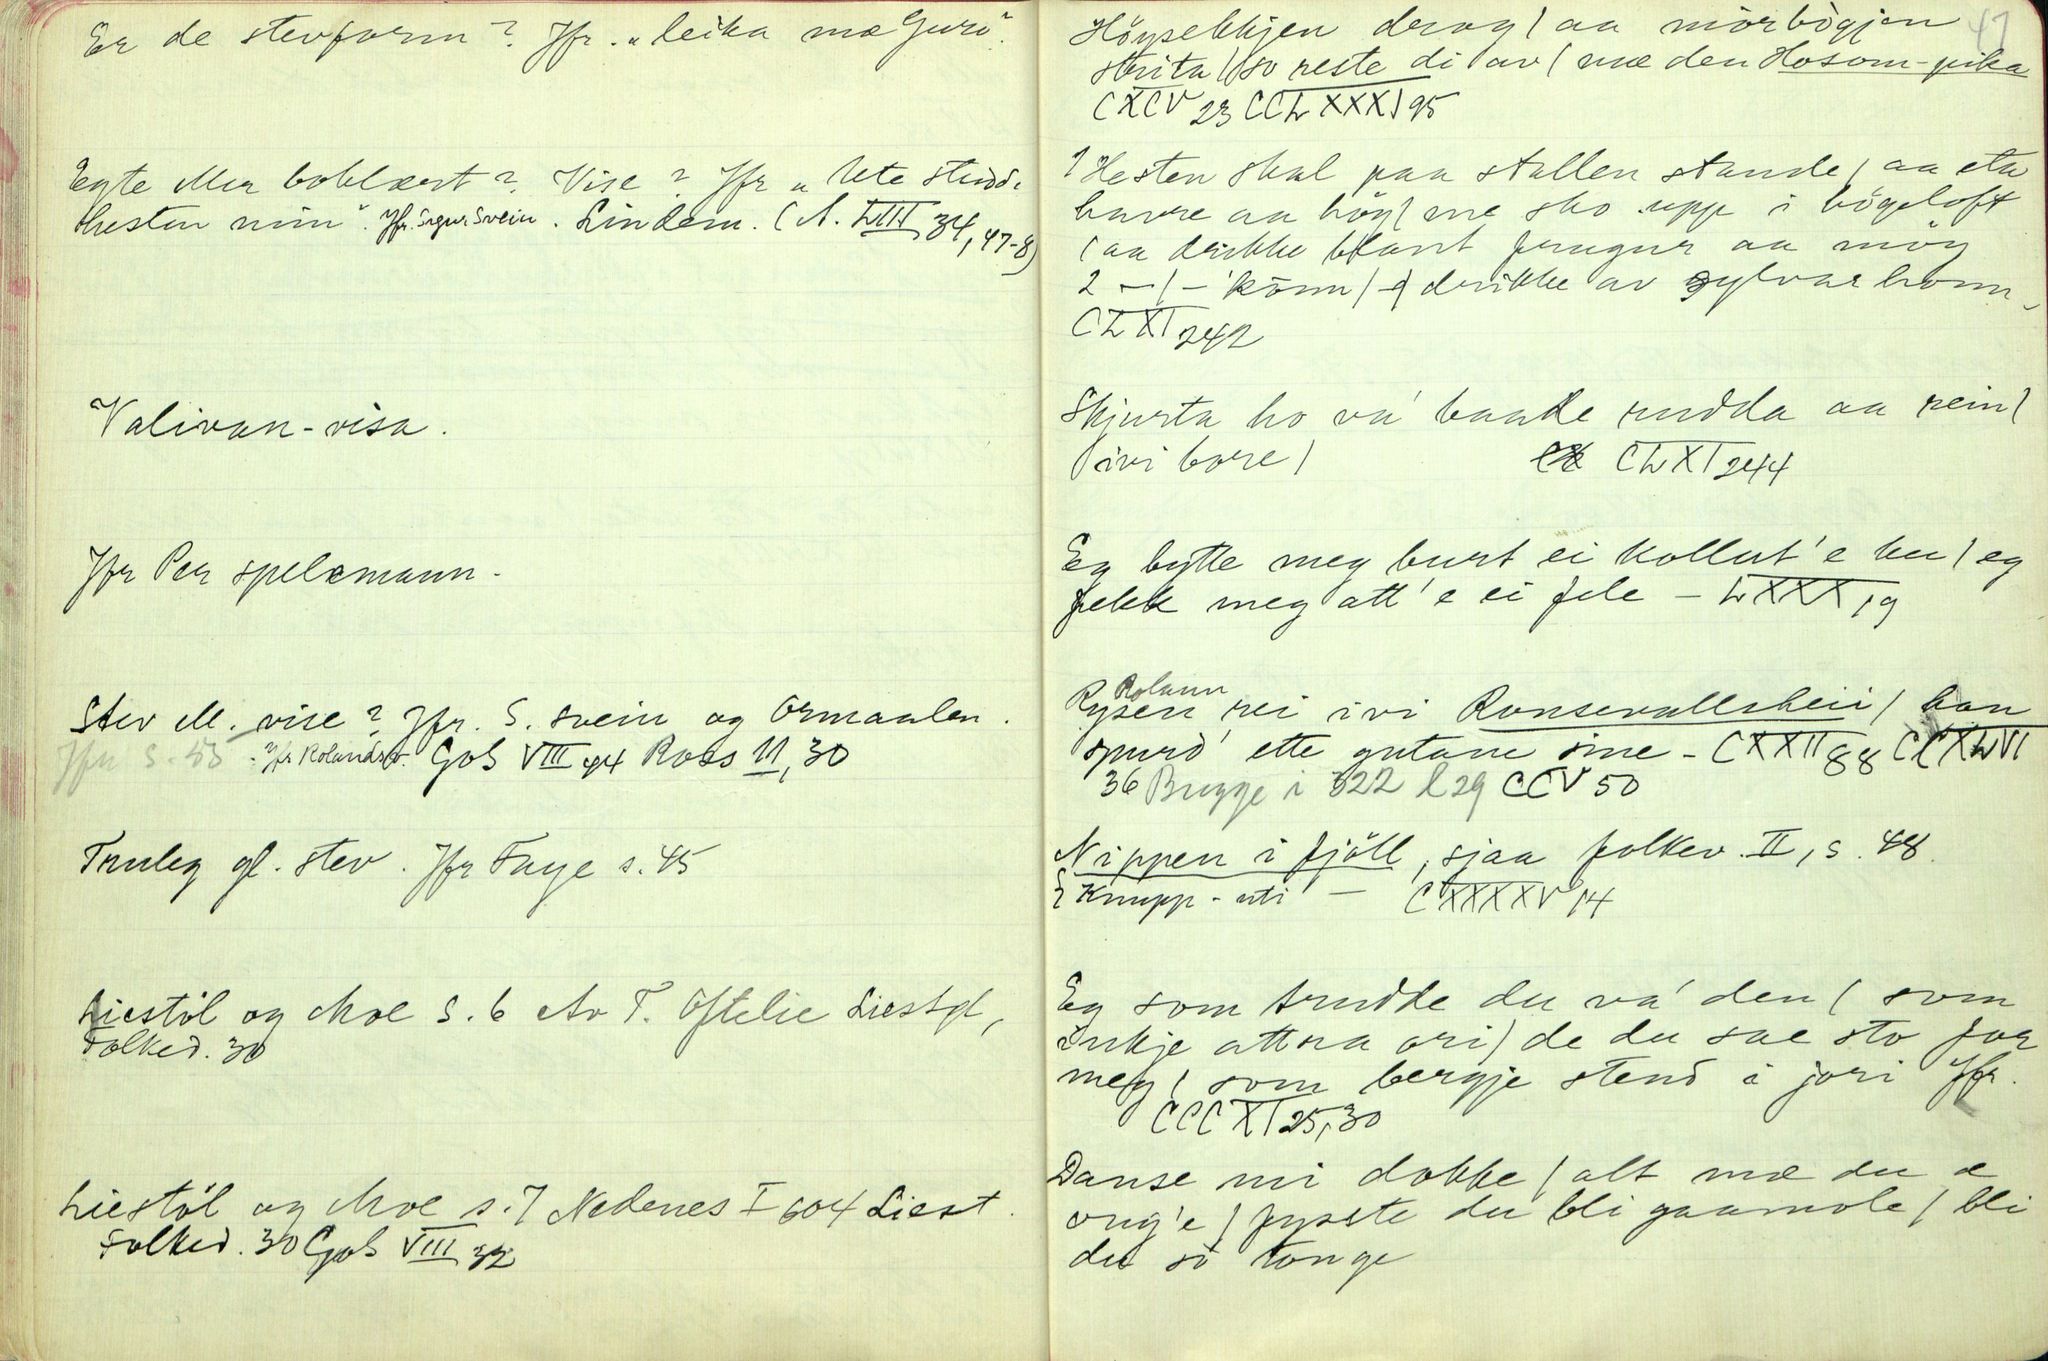 Er de stevform? Jfr. „leika mæ Guro“.
Egte Mer boklært? Vise? Jfr „ute stend
hesten min“. Jfr. Sigur Svein. Lindem. (A. LIII 34, 47-8)
Valivan-visa.
Jfr Per spelemann.
Stev M. vise? Jfr. S. svein og Ormaalen.
Jfr S. 53 Jfr Rolandskv. Gbs VIII 44 Ross 11, 30
Truleg gl. stev. Jfr Faye s. 45
Liestöl og Moe S. 6 Av T. Oftelie Liestøl,
Folked. 30
Liestöl og Moe s. 7 Nedenes I 604 Liest.
Folked. 30 Gbs VIII 32
47
Höysekkjen drog / aa mörbögjen
strita / so reste di av / mæ den Hosom-pika
CXCV 23 CCLXXXI 95
1 Hesten skal paa stallen stande / aa eta
havre aa höy / me sko upp i högeloft
/ aa drikke blant frugur aa möy
2 — / — könn / — drikke av sylvar honn
CLXI 242
Skjurta ho va' baade rudda aa rein /
ivi bore / CLXI 244
Eg bytte meg burt ei kollut'e ku / eg
fekk meg att'e ei fele – LXXX 19
Rolann
Rysen rei ivi Runsevallsheii / han
spurd' ette gutane sine – CXXII 88 CCXLVI
36 Bugge i 322 l 29 CCV 50
Nippen i fjöll, sjaa folkev. II, s. 48.
Knupp-uti — CXXXXV 14
Eg som trudde du va' den / som
inkje attra ori / de du sae sto for
meg / som bergje stend i jori Jfr.
CCCXI 25, 30
Danse mi dokke / alt mæ du æ
ong'e / fysste du bli gaamole / bli
du so tonge